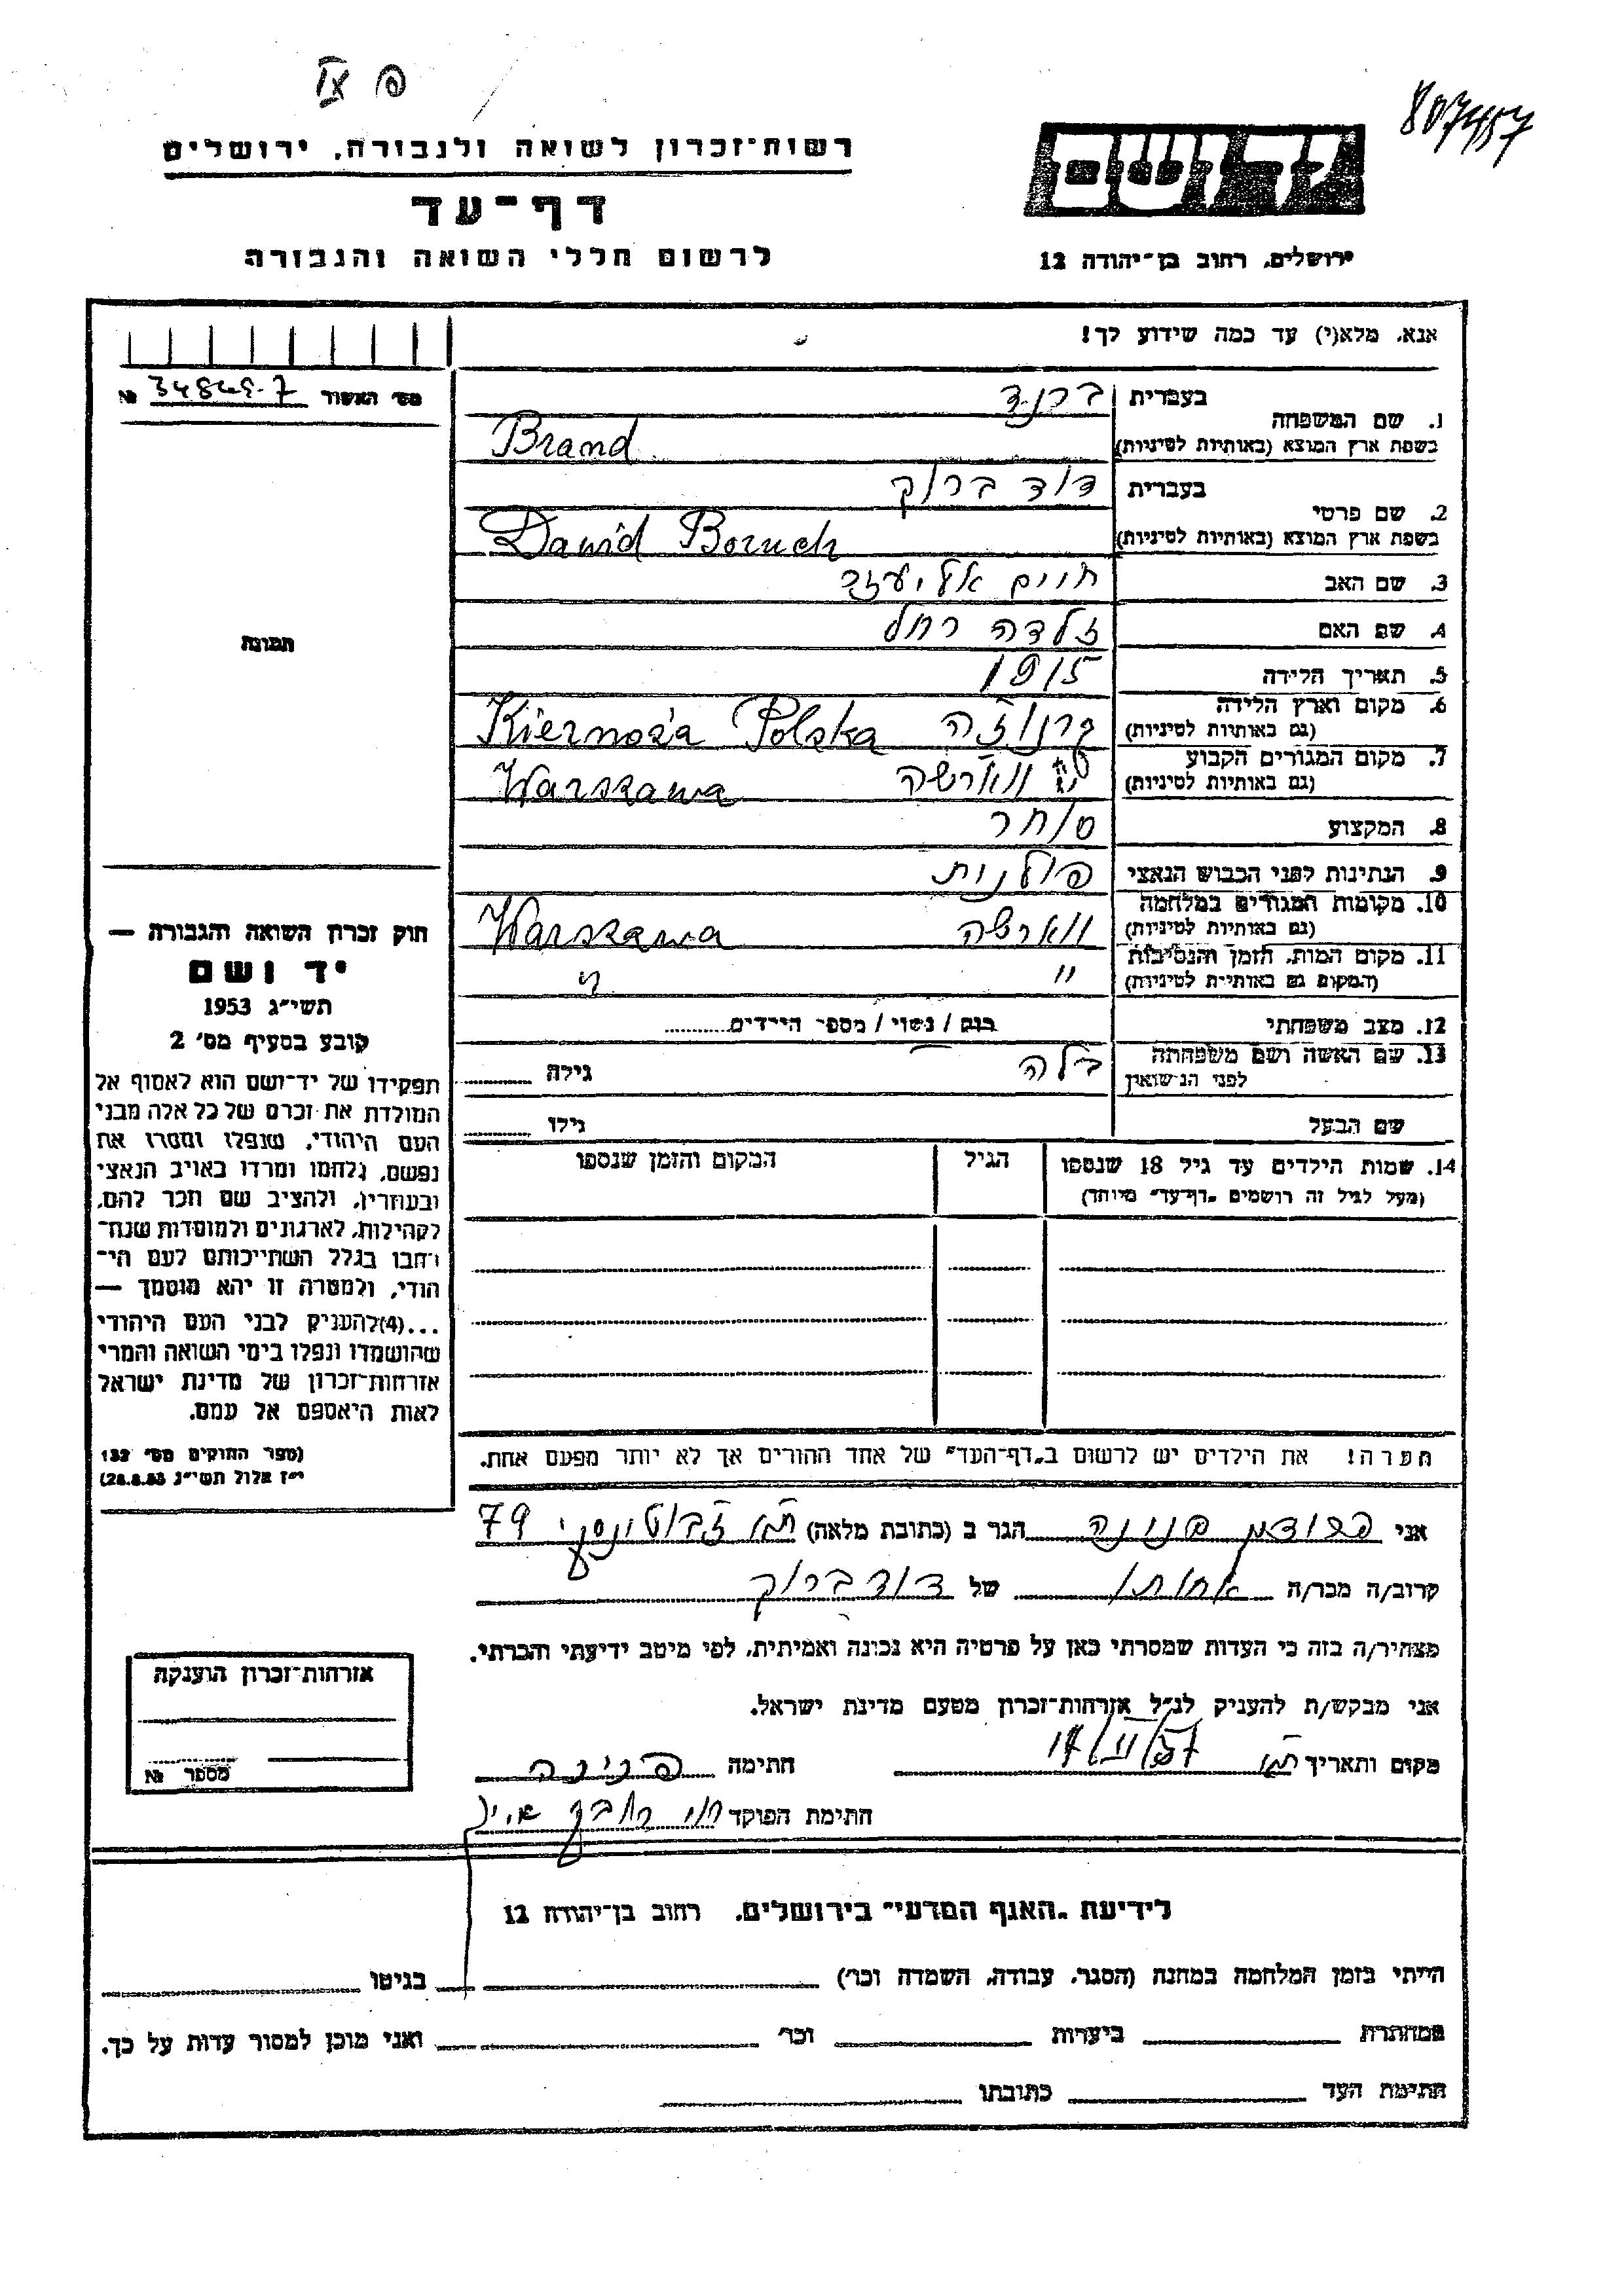 807457
רשות־זכרון לשואה ולגבורה, ירושלים
דף־עד
לרשום חללי השואה והגבורה
יד ושם
ירושלים, רחוב בן־יהודה 12
אנא, מלא(י) עד כמה שידוע לך!
מס׳ האשור №
1. שם המשפחה
בעברית ברנד
בשפת ארץ המוצא (באותיות לטיניות) Brand
2. שם פרטי
בעברית דוד ברוך
בשפת ארץ המוצא (באותיות לטיניות) Dawid Boruch
3. שם האב חיים אליעזר
4. שם האם זלדה רחל
5. תאריך הלידה 1915
6. מקום וארץ הלידה
(גם באותיות לטיניות) Kiernozia Polska
7. מקום המגורים הקבוע
(גם באותיות לטיניות) ווארשה Warszawa
8. המקצוע סוחר
9. הנתינות לפני הכבוש הנאצי פולנית
10. מקומות המגורים במלחמה
(גם באותיות לטיניות) ווארשה Warszawa
11. מקום המות, הזמן והנסיבות
(המקום גם באותיות לטיניות) " "
12. מצב משפחתי רווק / נשוי / מספר הילדים
13. שם האשה ושם משפחתה
לפני הנישואין בלה גילה
שם הבעל גילו
14. שמות הילדים עד גיל 18 שנספו הגיל המקום והזמן שנספו
(מעל לגיל זה רושמים „דף־עד" מיוחד)
הערה! את הילדים יש לרשום ב„דף־העד" של אחד ההורים אך לא יותר מפעם אחת.
תמונה
חוק זכרון השואה והגבורה —
יד ושם
תשי״ג 1953
קובע בסעיף מס׳ 2
תפקידו של יד־ושם הוא לאסוף אל
המולדת את זכרם של כל אלה מבני
העם היהודי, שנפלו ומסרו את
נפשם, נלחמו ומרדו באויב הנאצי
ובעוזריו, ולהציב שם וזכר להם,
לקהילות, לארגונים ולמוסדות שנח־
רבו בגלל השתייכותם לעם הי־
הודי, ולמטרה זו יהא מוסמך —
...(4)להעניק לבני העם היהודי
שהושמדו ונפלו בימי השואה והמרי
אזרחות־זכרון של מדינת ישראל
לאות היאספם אל עמם.
(ספר החוקים מס׳ 132
י״ז אלול תשי״ג 28.8.53)
אני פנינה הגר ב (כתובת מלאה) ת״א ז׳בוטינסקי 79
קרוב/ה מכר/ה אחותו של דוד ברוך
מצהיר/ה בזה כי העדות שמסרתי כאן על פרטיה היא נכונה ואמיתית, לפי מיטב ידיעתי והכרתי.
אני מבקש/ת להעניק לנ״ל אזרחות־זכרון מטעם מדינת ישראל.
מקום ותאריך ת״א 17/II/57 חתימה פנינה
חתימת הפוקד
אזרחות־זכרון הוענקה
מספר №
לידיעת „האגף המדעי" בירושלים, רחוב בן־יהודה 12
הייתי בזמן המלחמה במחנה (הסגר, עבודה, השמדה וכו׳) בגיטו
במחתרת ביערות וכו׳ ואני מוכן למסור עדות על כך.
חתימת העד כתובתו